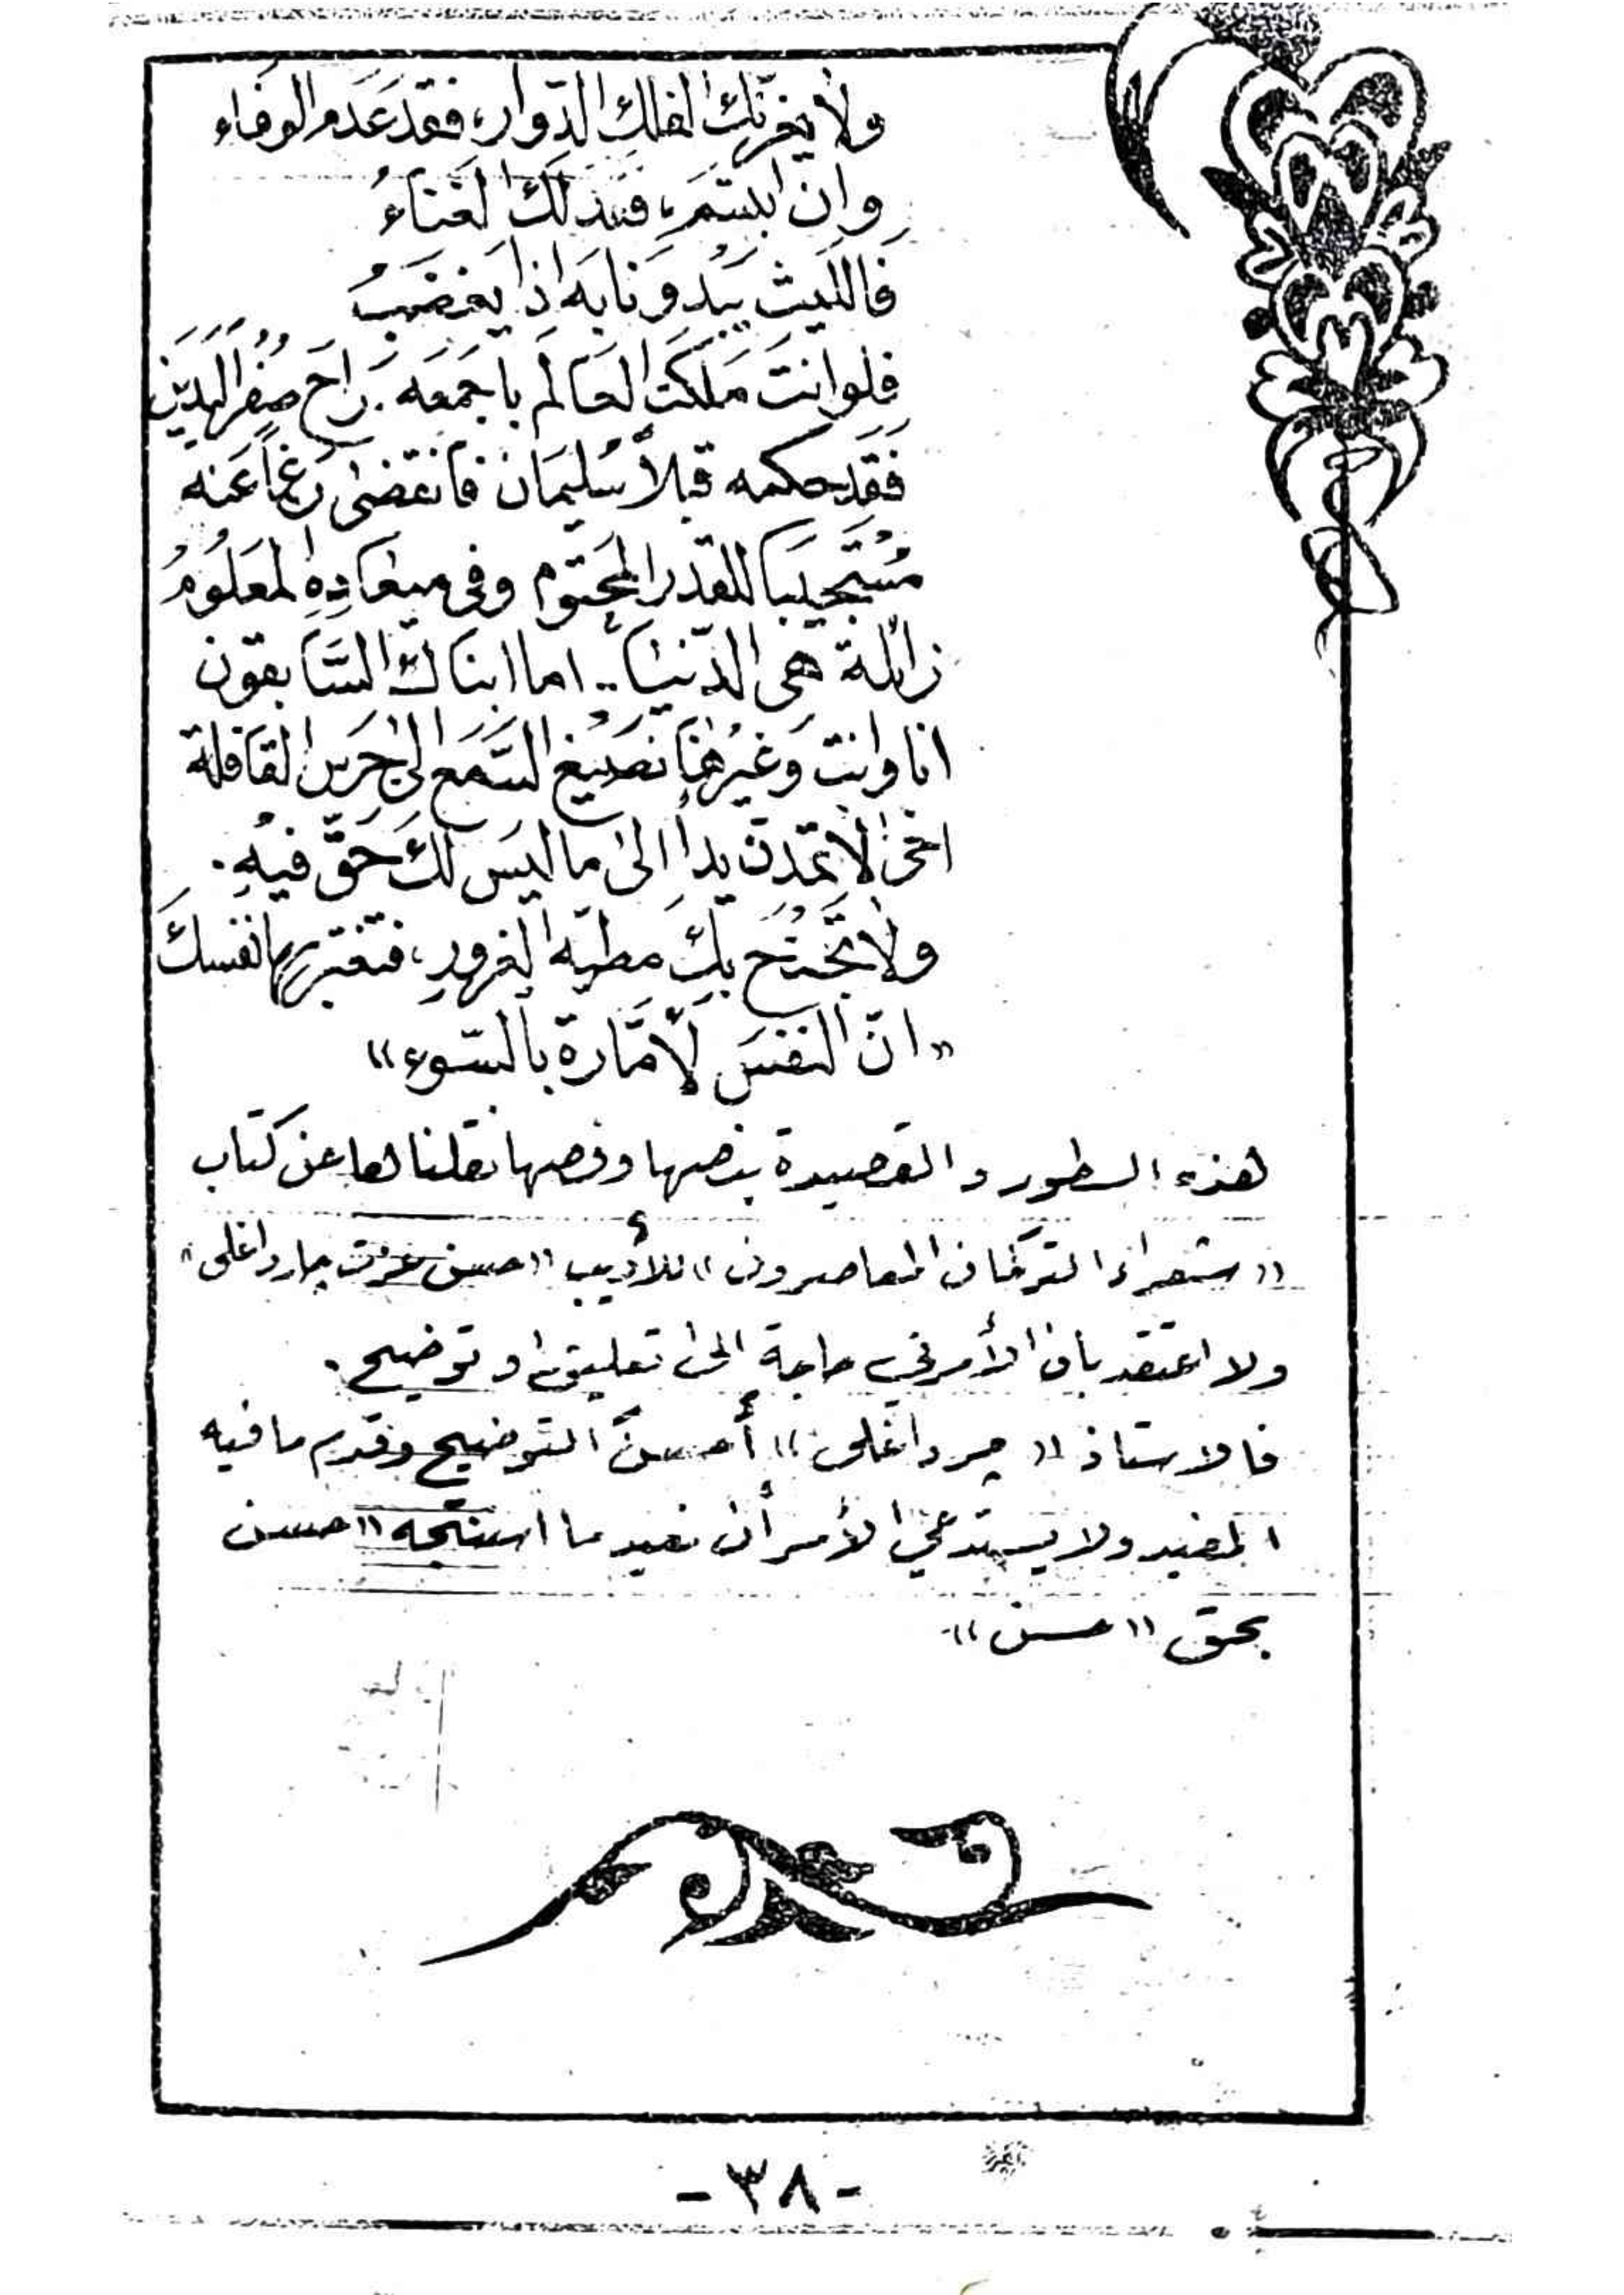 ولا يغرّنك الفلك الدّوار، فقد عَدم الوفاء
وان ابتسَمَ، فذلك لعَناءُ
فالليث يَبْدو نابه اذا يغضَبُ
فلو انتَ مَلكتَ العَالَم باجمَعَه. رَاحَ صُفرُ اليدَين
فقد حكمه قبلاً سُليمان فانقضى رَغماً عَنه
مُسْتَجيباً للقدر المحَتوم وفى ميعَادِهِ المعَلُومُ
زائلة هى الدّنيا.. اما ابناك السَّابقون
انا وانتَ وَغيرُهنا نصيغ السَّمَع الى جَرَس القافلة
اخى لا تمدّن يداً الى ما ليَس لكَ حَقّ فيهِ.
ولا تَجْنَح بكَ مطيّه الغرور، فتغتر بها نفسكَ
«انّ النفسَ لأمَّارة بالسّوء»
هذه السطور والقصيدة بنصها وفصها نقلناها عن كتاب
«شعراء التركمان المعاصرون» للأديب «حسن عزت جارداغلى»
ولا اعتقد بان الأمر في حاجة الى تعليق او توضيح.
فالاستاذ «چرداغلى» أحسنَ التوضيح وقدم ما فيه
المفيد ولا يستدعي الأمر أن نعيد ما استنتجه «حسن
بحق «حسن».
-٣٨-